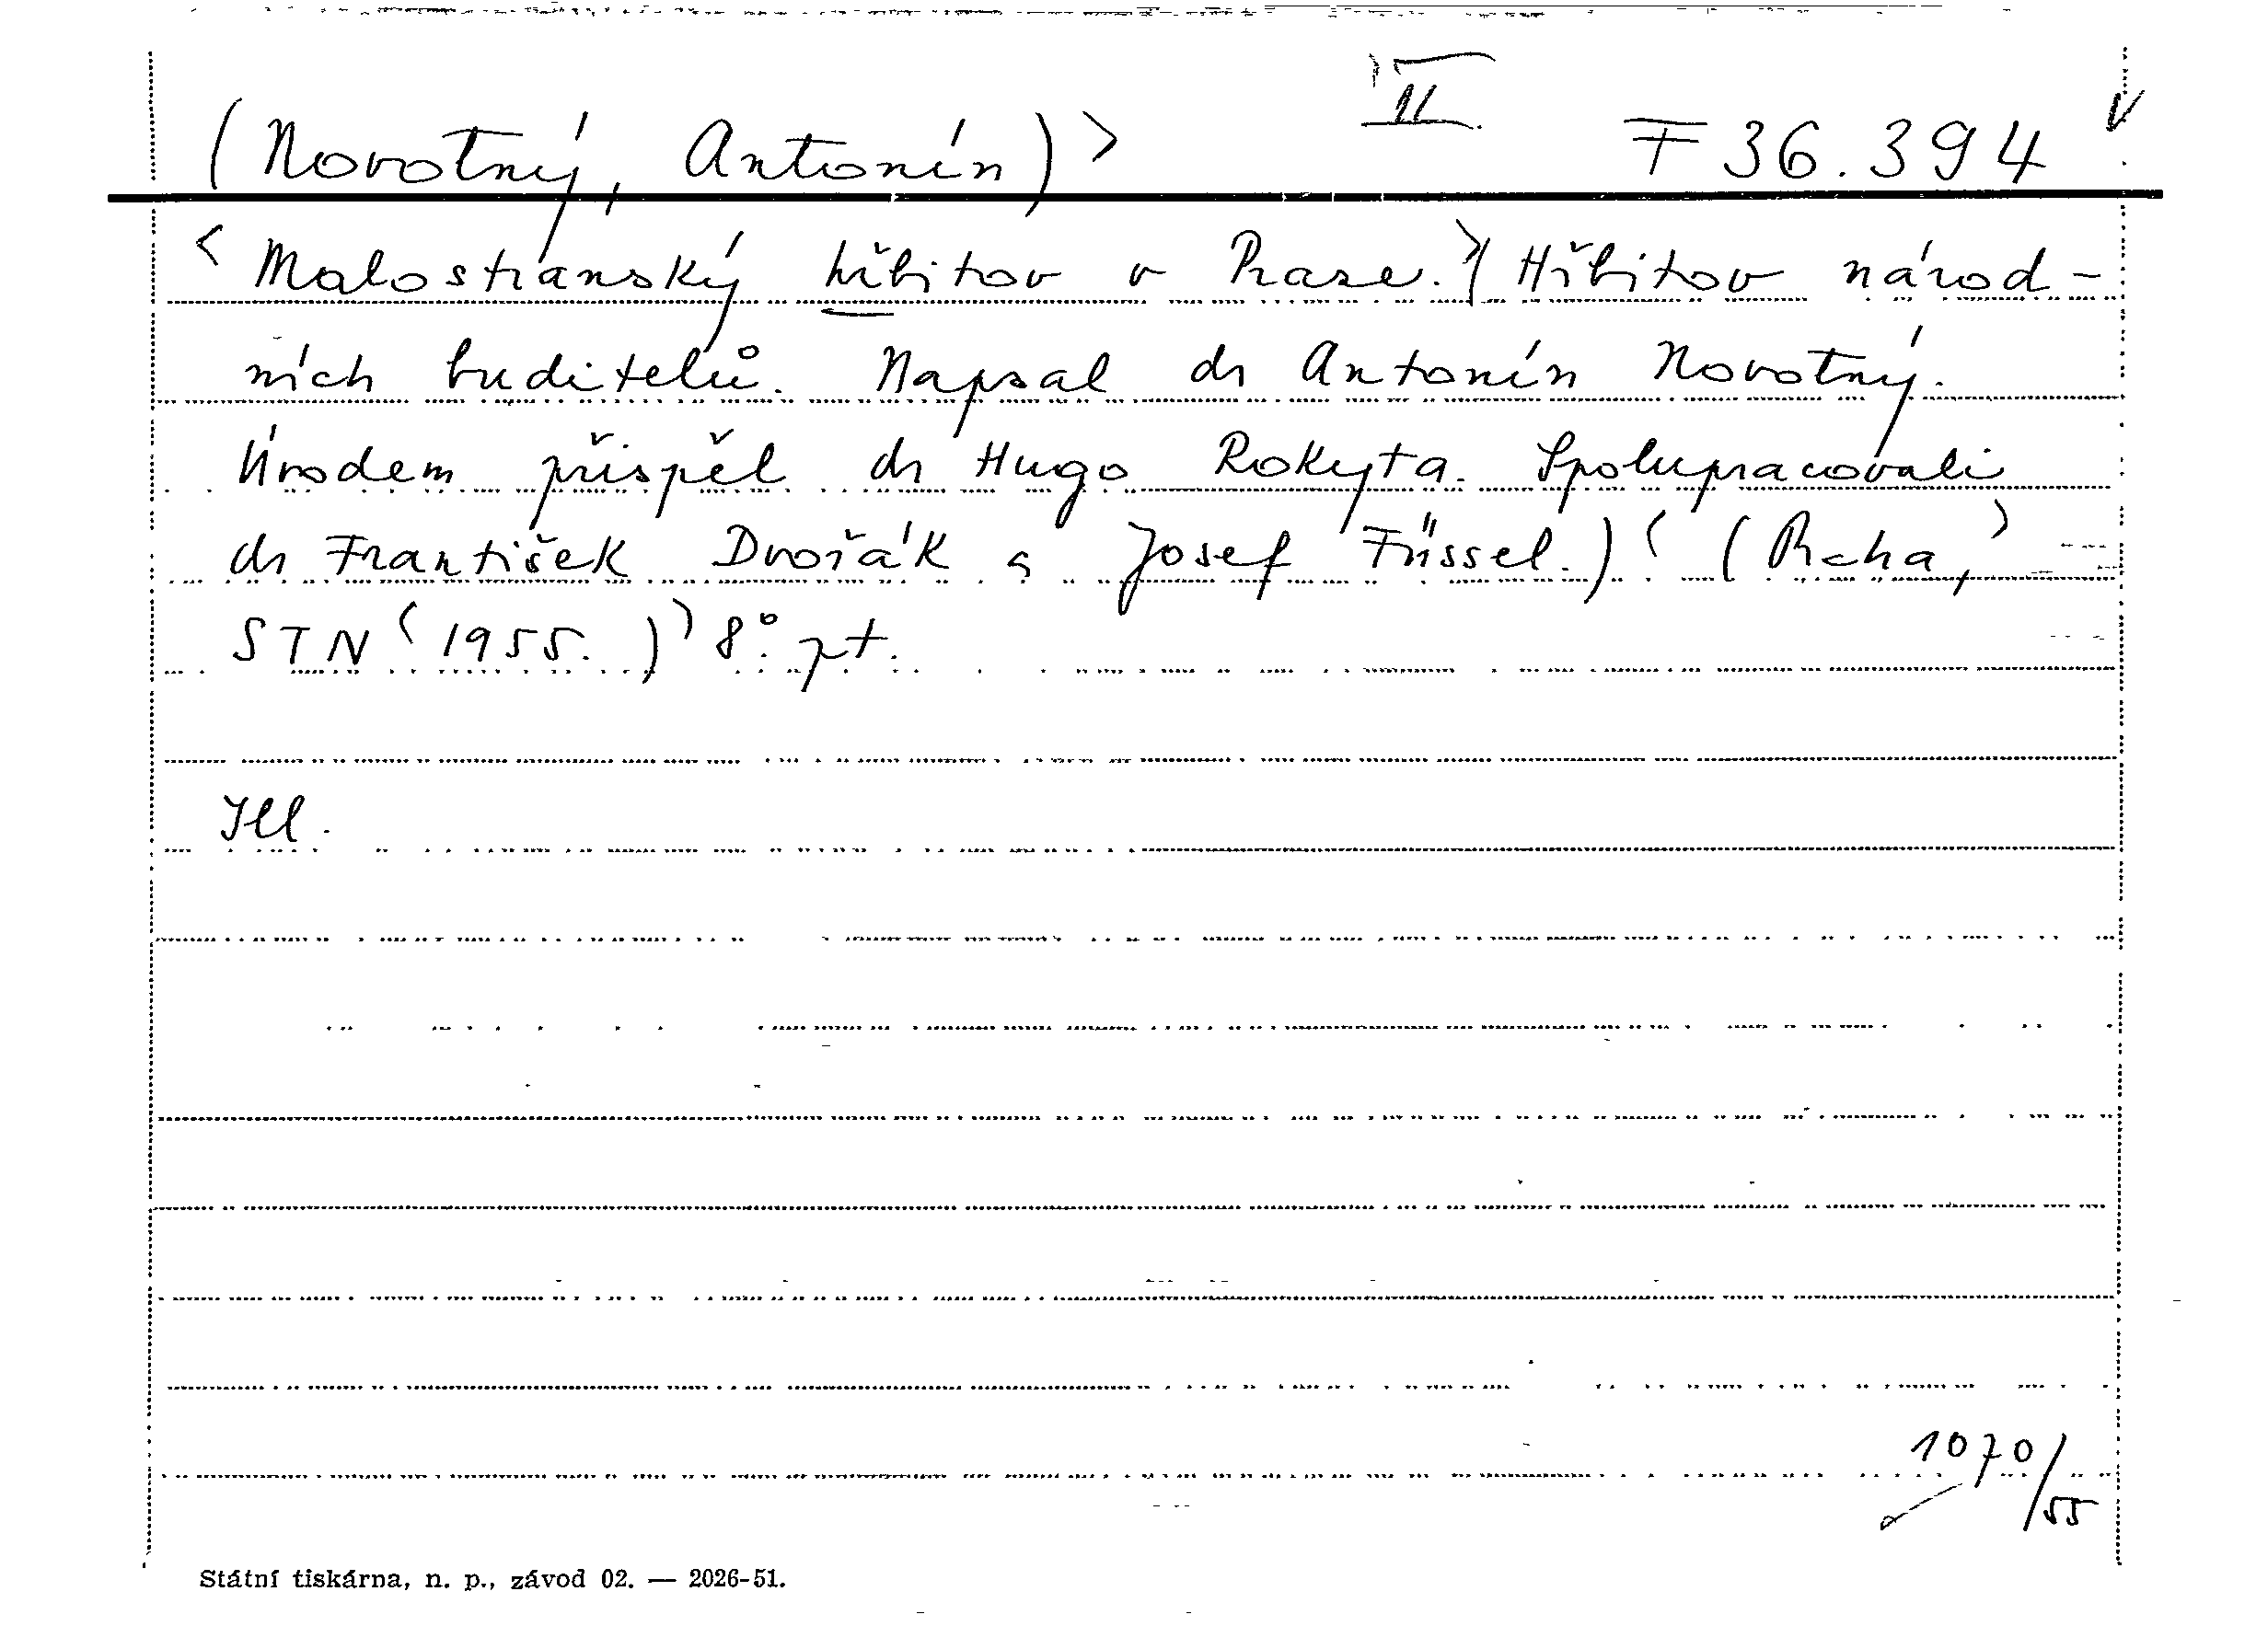 II
(Novotný, Antonín)> F 36.394 v
<Malostranský hřbitov v Praze.>(Hřbitov národ-
ních buditelů. Napsal dr Antonín Novotný.
Úvodem přispěl dr Hugo Rokyta. Spolupracovali
dr František Dvořák a Josef Füssel.)< (Praha,>
STN<1955.)> 8° pt.
Ill.
1070/55
Státní tiskárna, n. p., závod 02. — 2026-51.